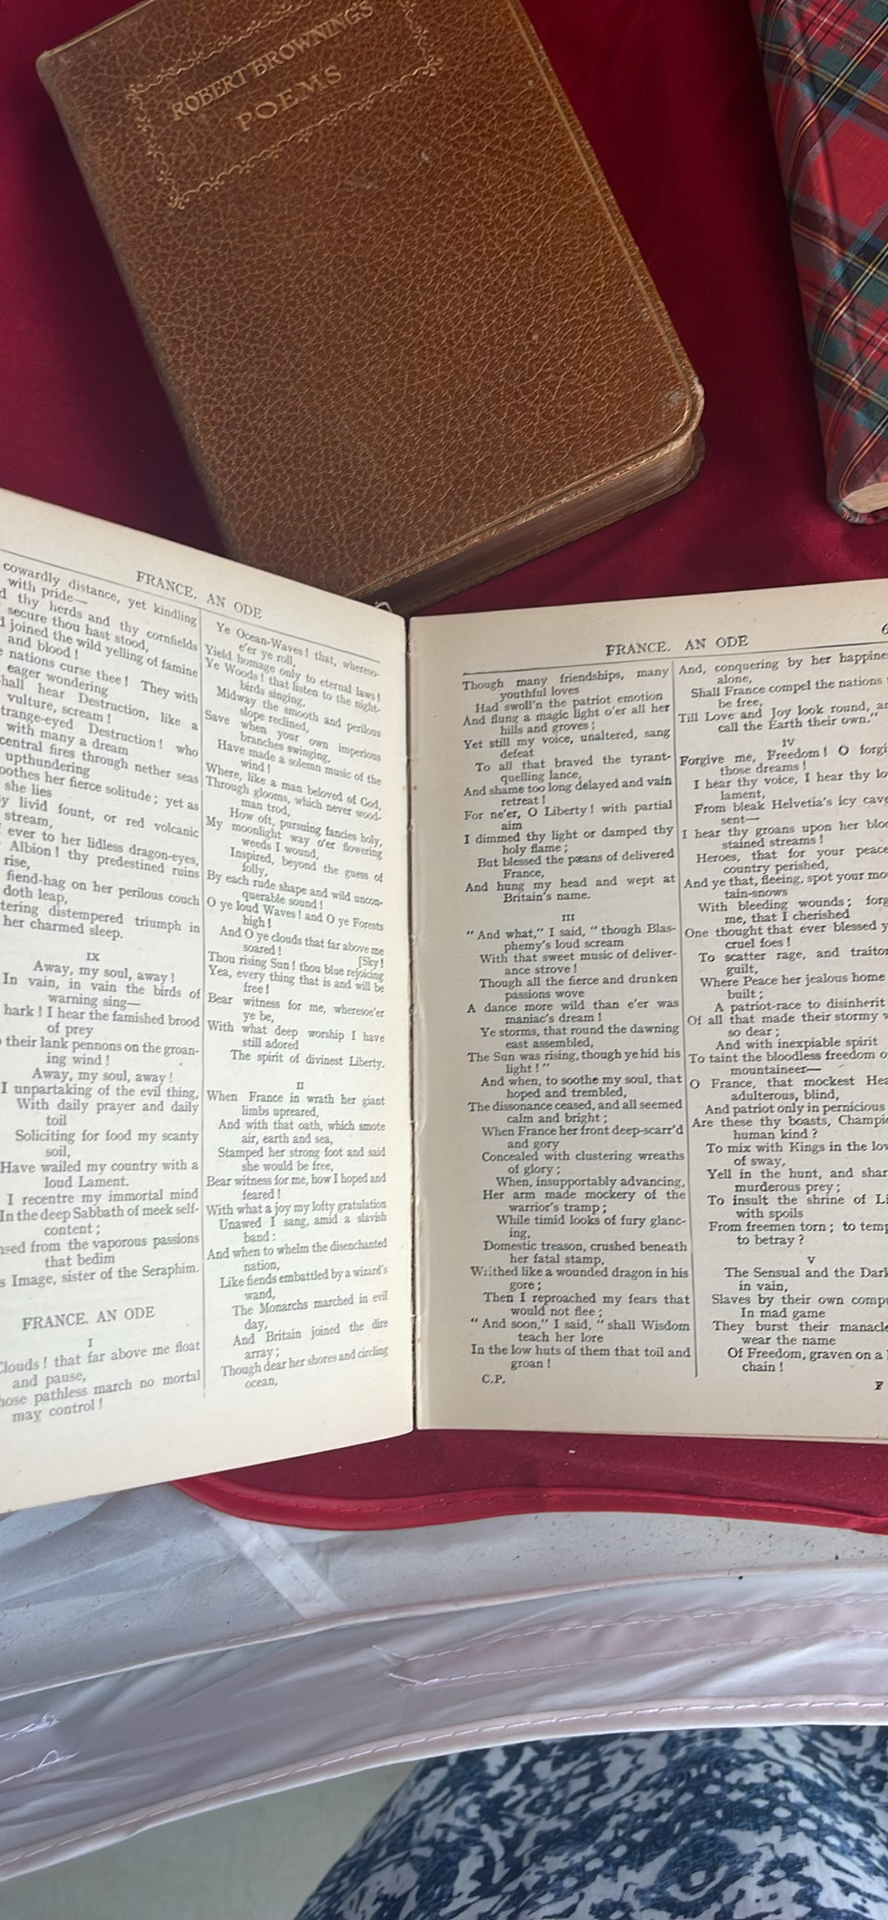 ROBERT BROWNING'S
POEMS
FRANCE. AN ODE
cowardly distance, yet kindling
with pride—
thy herds and thy cornfields
secure thou hast stood,
joined the wild yelling of famine
and blood!
nations curse thee! They with
eager wondering
hear Destruction, like a
vulture, scream!
Destruction! who
with many a dream
central fires through nether seas
upthundering
her fierce solitude; yet as
she lies
livid fount, or red volcanic
stream,
ever to her lidless dragon-eyes,
Albion! thy predestined ruins
rise,
fiend-hag on her perilous couch
doth leap,
distempered triumph in
her charmed sleep.
IX
Away, my soul, away!
In vain, in vain the birds of
warning sing—
hark! I hear the famished brood
of prey
their lank pennons on the groan-
ing wind!
Away, my soul, away!
I unpartaking of the evil thing,
With daily prayer and daily
toil
Soliciting for food my scanty
soil,
Have wailed my country with a
loud Lament.
I recentre my immortal mind
In the deep Sabbath of meek self-
content;
from the vaporous passions
that bedim
Image, sister of the Seraphim.
FRANCE. AN ODE
I
Clouds! that far above me float
and pause,
pathless march no mortal
may control!
Ye Ocean-Waves! that, whereso-
e'er ye roll,
Yield homage only to eternal laws!
Ye Woods! that listen to the night-
birds singing,
Midway the smooth and perilous
slope reclined,
Save when your own imperious
branches swinging,
Have made a solemn music of the
wind!
Where, like a man beloved of God,
Through glooms, which never wood-
man trod,
How oft, pursuing fancies holy,
My moonlight way o'er flowering
weeds I wound,
Inspired, beyond the guess of
folly,
By each rude shape and wild uncon-
querable sound!
O ye loud Waves! and O ye Forests
high!
And O ye clouds that far above me
soared! [Sky!
Thou rising Sun! thou blue rejoicing
Yea, every thing that is and will be
free!
Bear witness for me, wheresoe'er
ye be,
With what deep worship I have
still adored
The spirit of divinest Liberty.
II
When France in wrath her giant
limbs upreared,
And with that oath, which smote
air, earth and sea,
Stamped her strong foot and said
she would be free,
Bear witness for me, how I hoped and
feared!
With what a joy my lofty gratulation
Unawed I sang, amid a slavish
band:
And when to whelm the disenchanted
nation,
Like fiends embattled by a wizard's
wand,
The Monarchs marched in evil
day,
And Britain joined the dire
array;
Though dear her shores and circling
ocean,
FRANCE. AN ODE
Though many friendships, many
youthful loves
Had swoll'n the patriot emotion
And flung a magic light o'er all her
hills and groves;
Yet still my voice, unaltered, sang
defeat
To all that braved the tyrant-
quelling lance,
And shame too long delayed and vain
retreat!
For ne'er, O Liberty! with partial
aim
I dimmed thy light or damped thy
holy flame;
But blessed the pæans of delivered
France,
And hung my head and wept at
Britain's name.
III
"And what," I said, "though Blas-
phemy's loud scream
With that sweet music of deliver-
ance strove!
Though all the fierce and drunken
passions wove
A dance more wild than e'er was
maniac's dream!
Ye storms, that round the dawning
east assembled,
The Sun was rising, though ye hid his
light!"
And when, to soothe my soul, that
hoped and trembled,
The dissonance ceased, and all seemed
calm and bright;
When France her front deep-scarr'd
and gory
Concealed with clustering wreaths
of glory;
When, insupportably advancing,
Her arm made mockery of the
warrior's tramp;
While timid looks of fury glanc-
ing,
Domestic treason, crushed beneath
her fatal stamp,
Writhed like a wounded dragon in his
gore;
Then I reproached my fears that
would not flee;
"And soon," I said, "shall Wisdom
teach her lore
In the low huts of them that toil and
groan!
C.P.
And, conquering by her
alone,
Shall France compel the nations
be free,
Till Love and Joy look round,
call the Earth their own."
IV
Forgive me, Freedom! O
those dreams!
I hear thy voice, I hear thy
lament,
From bleak Helvetia's icy
sent—
I hear thy groans upon her
stained streams!
Heroes, that for your
country perished,
And ye that, fleeing, spot your
tain-snows
With bleeding wounds;
me, that I cherished
One thought that ever blessed
cruel foes!
To scatter rage, and
guilt,
Where Peace her jealous home
built;
A patriot-race to disinherit
Of all that made their stormy
so dear;
And with inexpiable spirit
To taint the bloodless freedom
mountaineer—
O France, that mockest
adulterous, blind,
And patriot only in pernicious
Are these thy boasts,
human kind?
To mix with Kings in the
of sway,
Yell in the hunt, and
murderous prey;
To insult the shrine of
with spoils
From freemen torn; to
to betray?
V
The Sensual and the
in vain,
Slaves by their own
In mad game
They burst their
wear the name
Of Freedom, graven on a
chain!
F